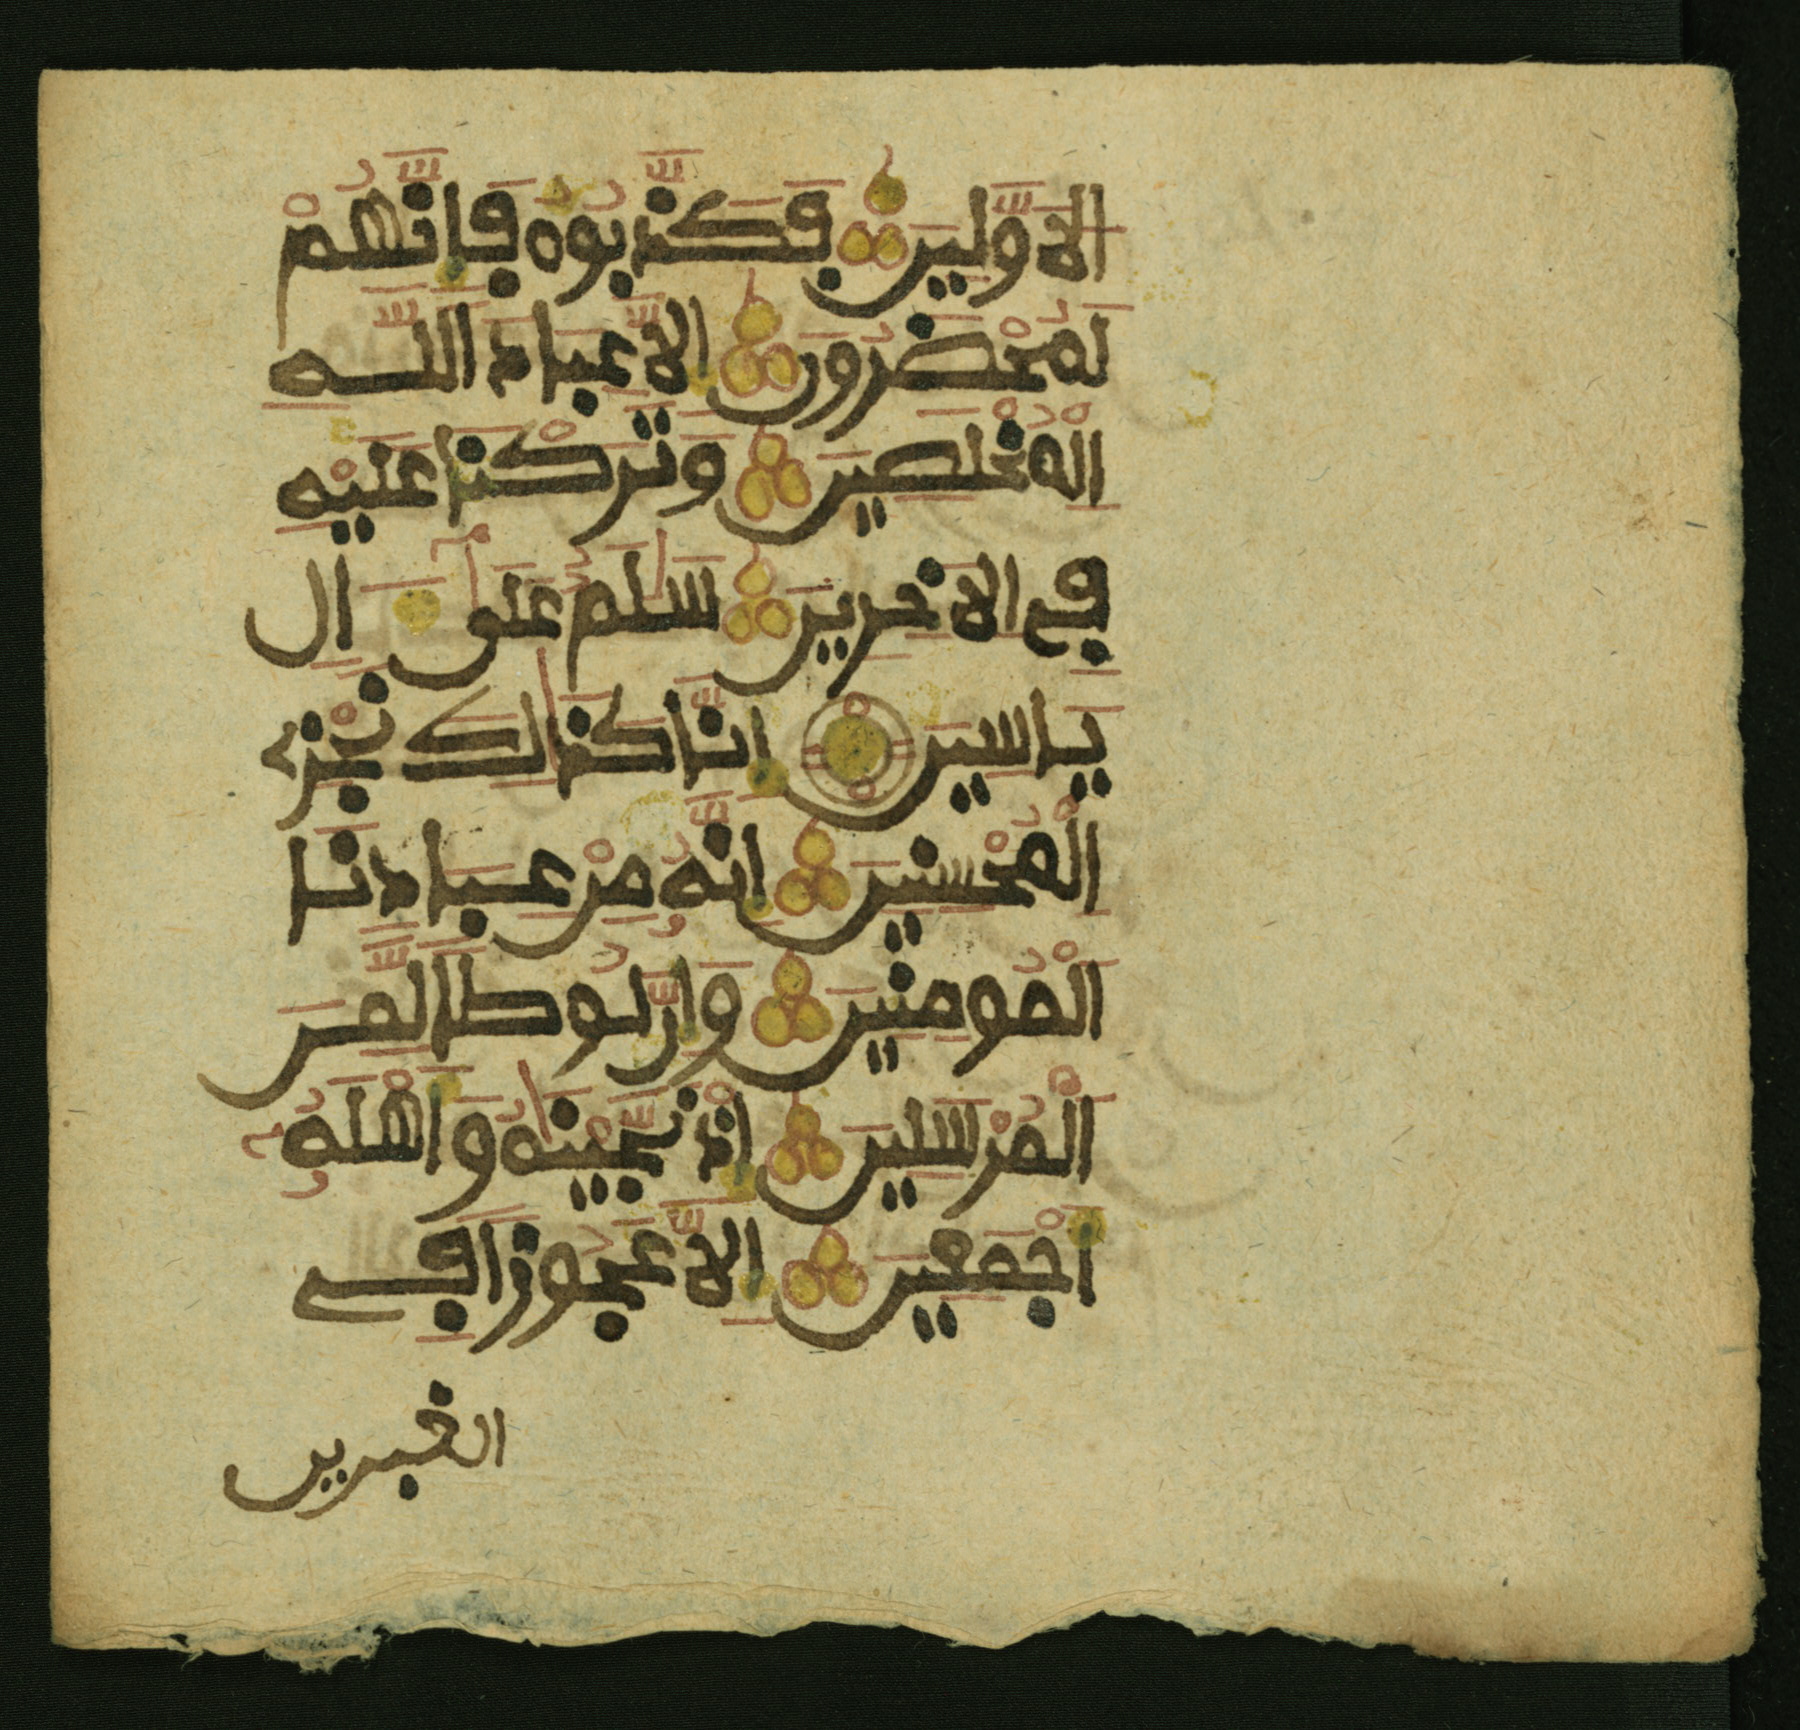 الَاوَّلِينَ فَكَذَّبُوهُ فَإِنَّهُمْ
لَمُحْضَرُونَ إِلَّا عِبَادَ اللَّهِ
الْمُخْلَصِينَ وَتَرَكْنَا عَلَيْهِ
فِي الَاخِرِينَ سَلَٰمٌ عَلَىٰٓ ءَالِ
يَاسِينَ إِنَّا كَذَٰلِكَ نَجْزِي
الْمُحْسِنِينَ إِنَّهُۥ مِنْ عِبَادِنَا
الْمُومِنِينَ وَإِنَّ لُوطًا لَّمِنَ
الْمُرْسَلِينَ إِذْ نَجَّيْنَٰهُ وَأَهْلَهُۥٓ
أَجْمَعِينَ إِلَّا عَجُوزًا فِي
الغبرين